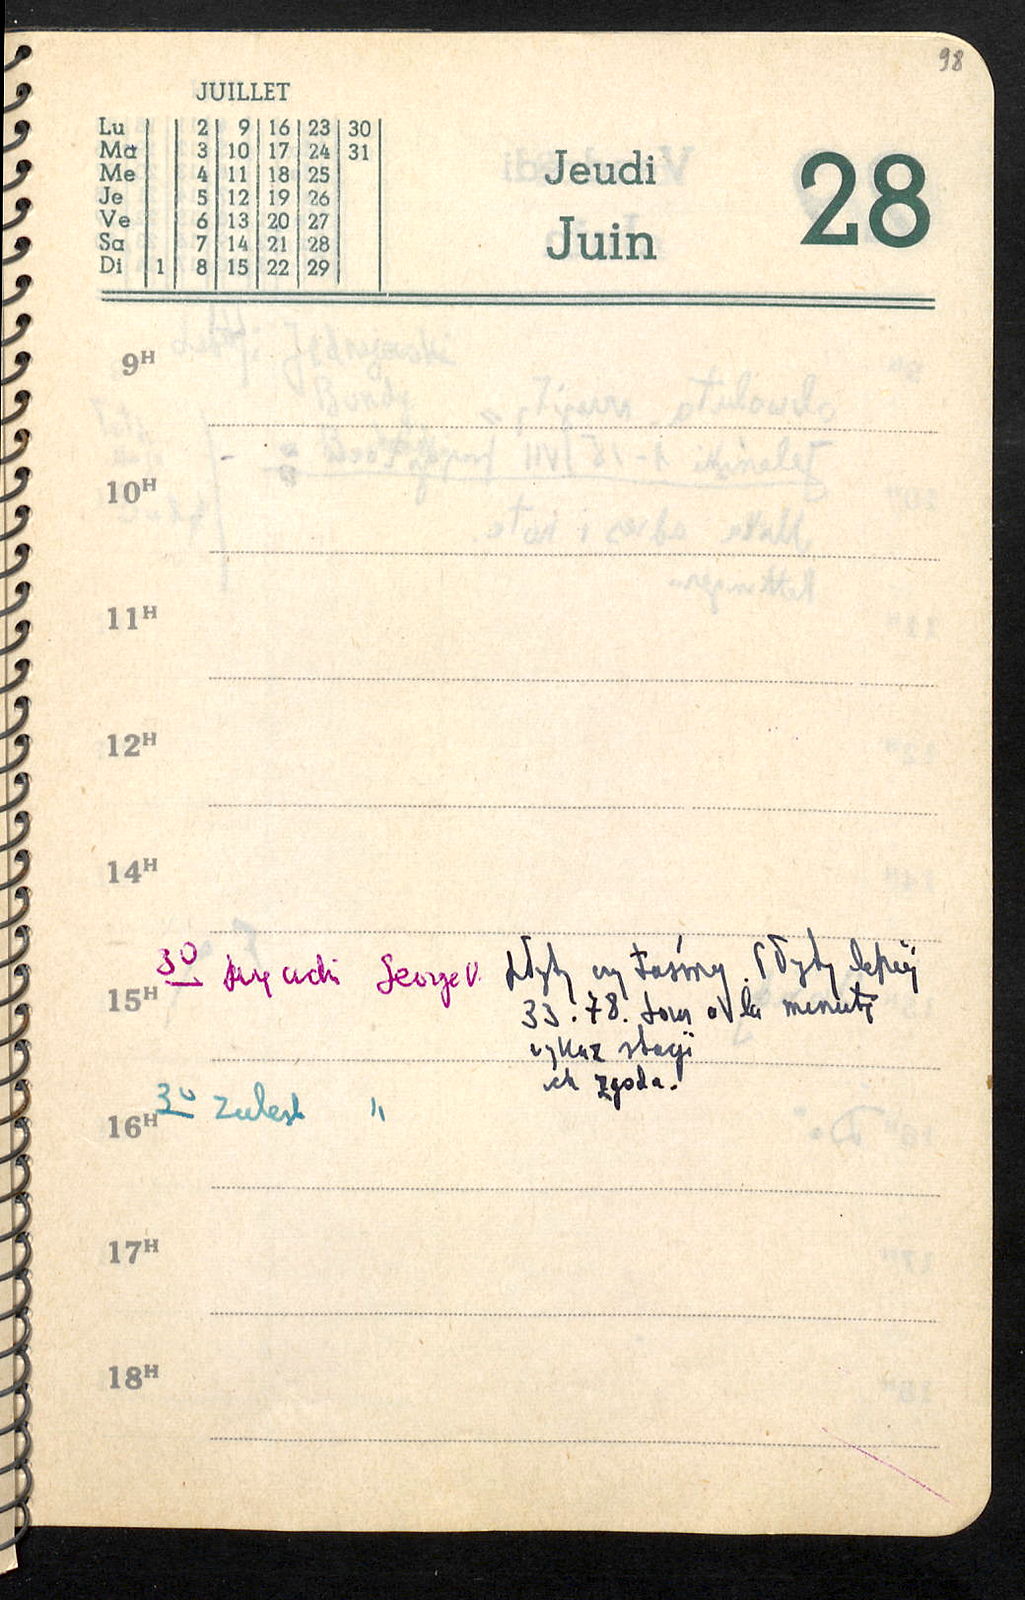 98
JUILLET
Lu 2 9 16 23 30
Ma 3 10 17 24 31
Me 4 11 18 25
Je 5 12 19 26
Ve 6 13 20 27
Sa 7 14 21 28
Di 1 8 15 22 29
Jeudi 28
Juin
9H
10H
11H
12H
14H
30 George V. płyty czy taśmy. Płyty lepiej
15H 33.78. tours à la minute
wykaz stacji
ich zgoda.
30 Zaleski "
16H
17H
18H